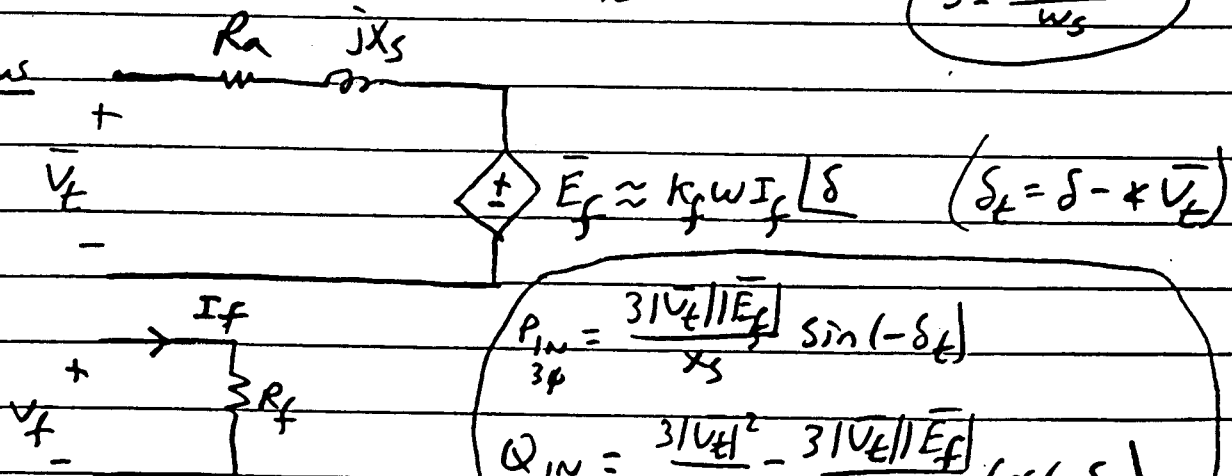 Ra jXs
+
V̄t
−
±
Ēf ≈ Kf ω If ∠δ (δt = δ − ∡ V̄t)
If
+
Vf
−
Rf
P_IN 3φ = 3|V̄t||Ēf| / Xs sin(−δt)
Q_IN = 3|V̄t|² − 3|V̄t||Ēf|
ωs